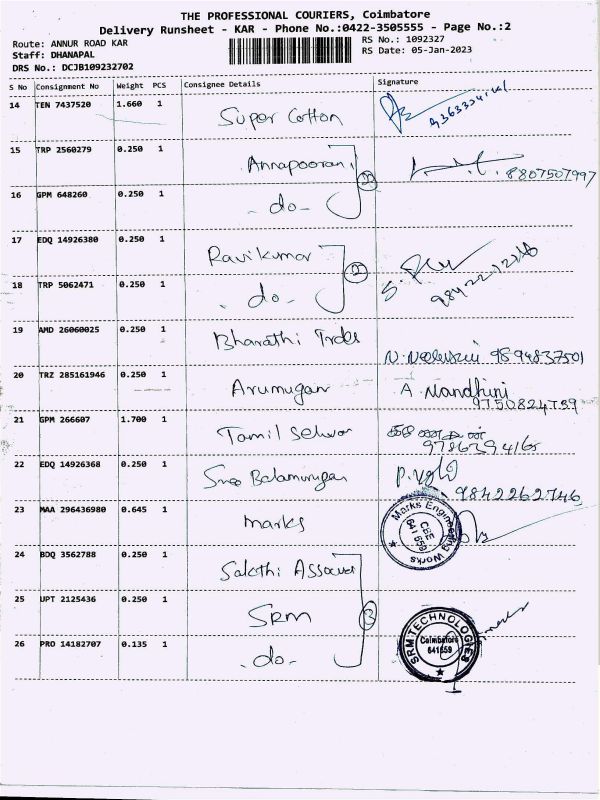 THE PROFESSIONAL COURIERS, Coimbatore
Delivery Runsheet - KAR - Phone No.:0422-3505555 - Page No.:2
Route: ANNUR ROAD KAR
RS No.: 1092327
Staff: DHANAPAL
RS Date: 05-Jan-2023
DRS No.: DCJB109232702
S No Consignment No Weight PCS Consignee Details Signature
14 TEN 7437520 1.660 1 Super Cotton
15 TRP 2560279 0.250 1 Annapoorani 8807507997
16 GPM 648260 0.250 1 - do -
17 EDQ 14926380 0.250 1 Ravikumar
18 TRP 5062471 0.250 1 - do -
19 AMD 26060025 0.250 1 Bharathi Trdes 9894837501
20 TRZ 285161946 0.250 1 Arumugan A. Nandhini
9750824759
21 GPM 266607 1.700 1 Tamil Selvan
22 EDQ 14926368 0.250 1 Sree Balamurugan
9842262746
23 MAA 296436980 0.645 1 Marks
Marks Engineering Works
CBE
641 659
24 BDQ 3562788 0.250 1 Sakthi
25 UPT 2125436 0.250 1 SRM
26 PRO 14182707 0.135 1 - do -
SRM TECHNOLOGIES
Coimbatore
641659